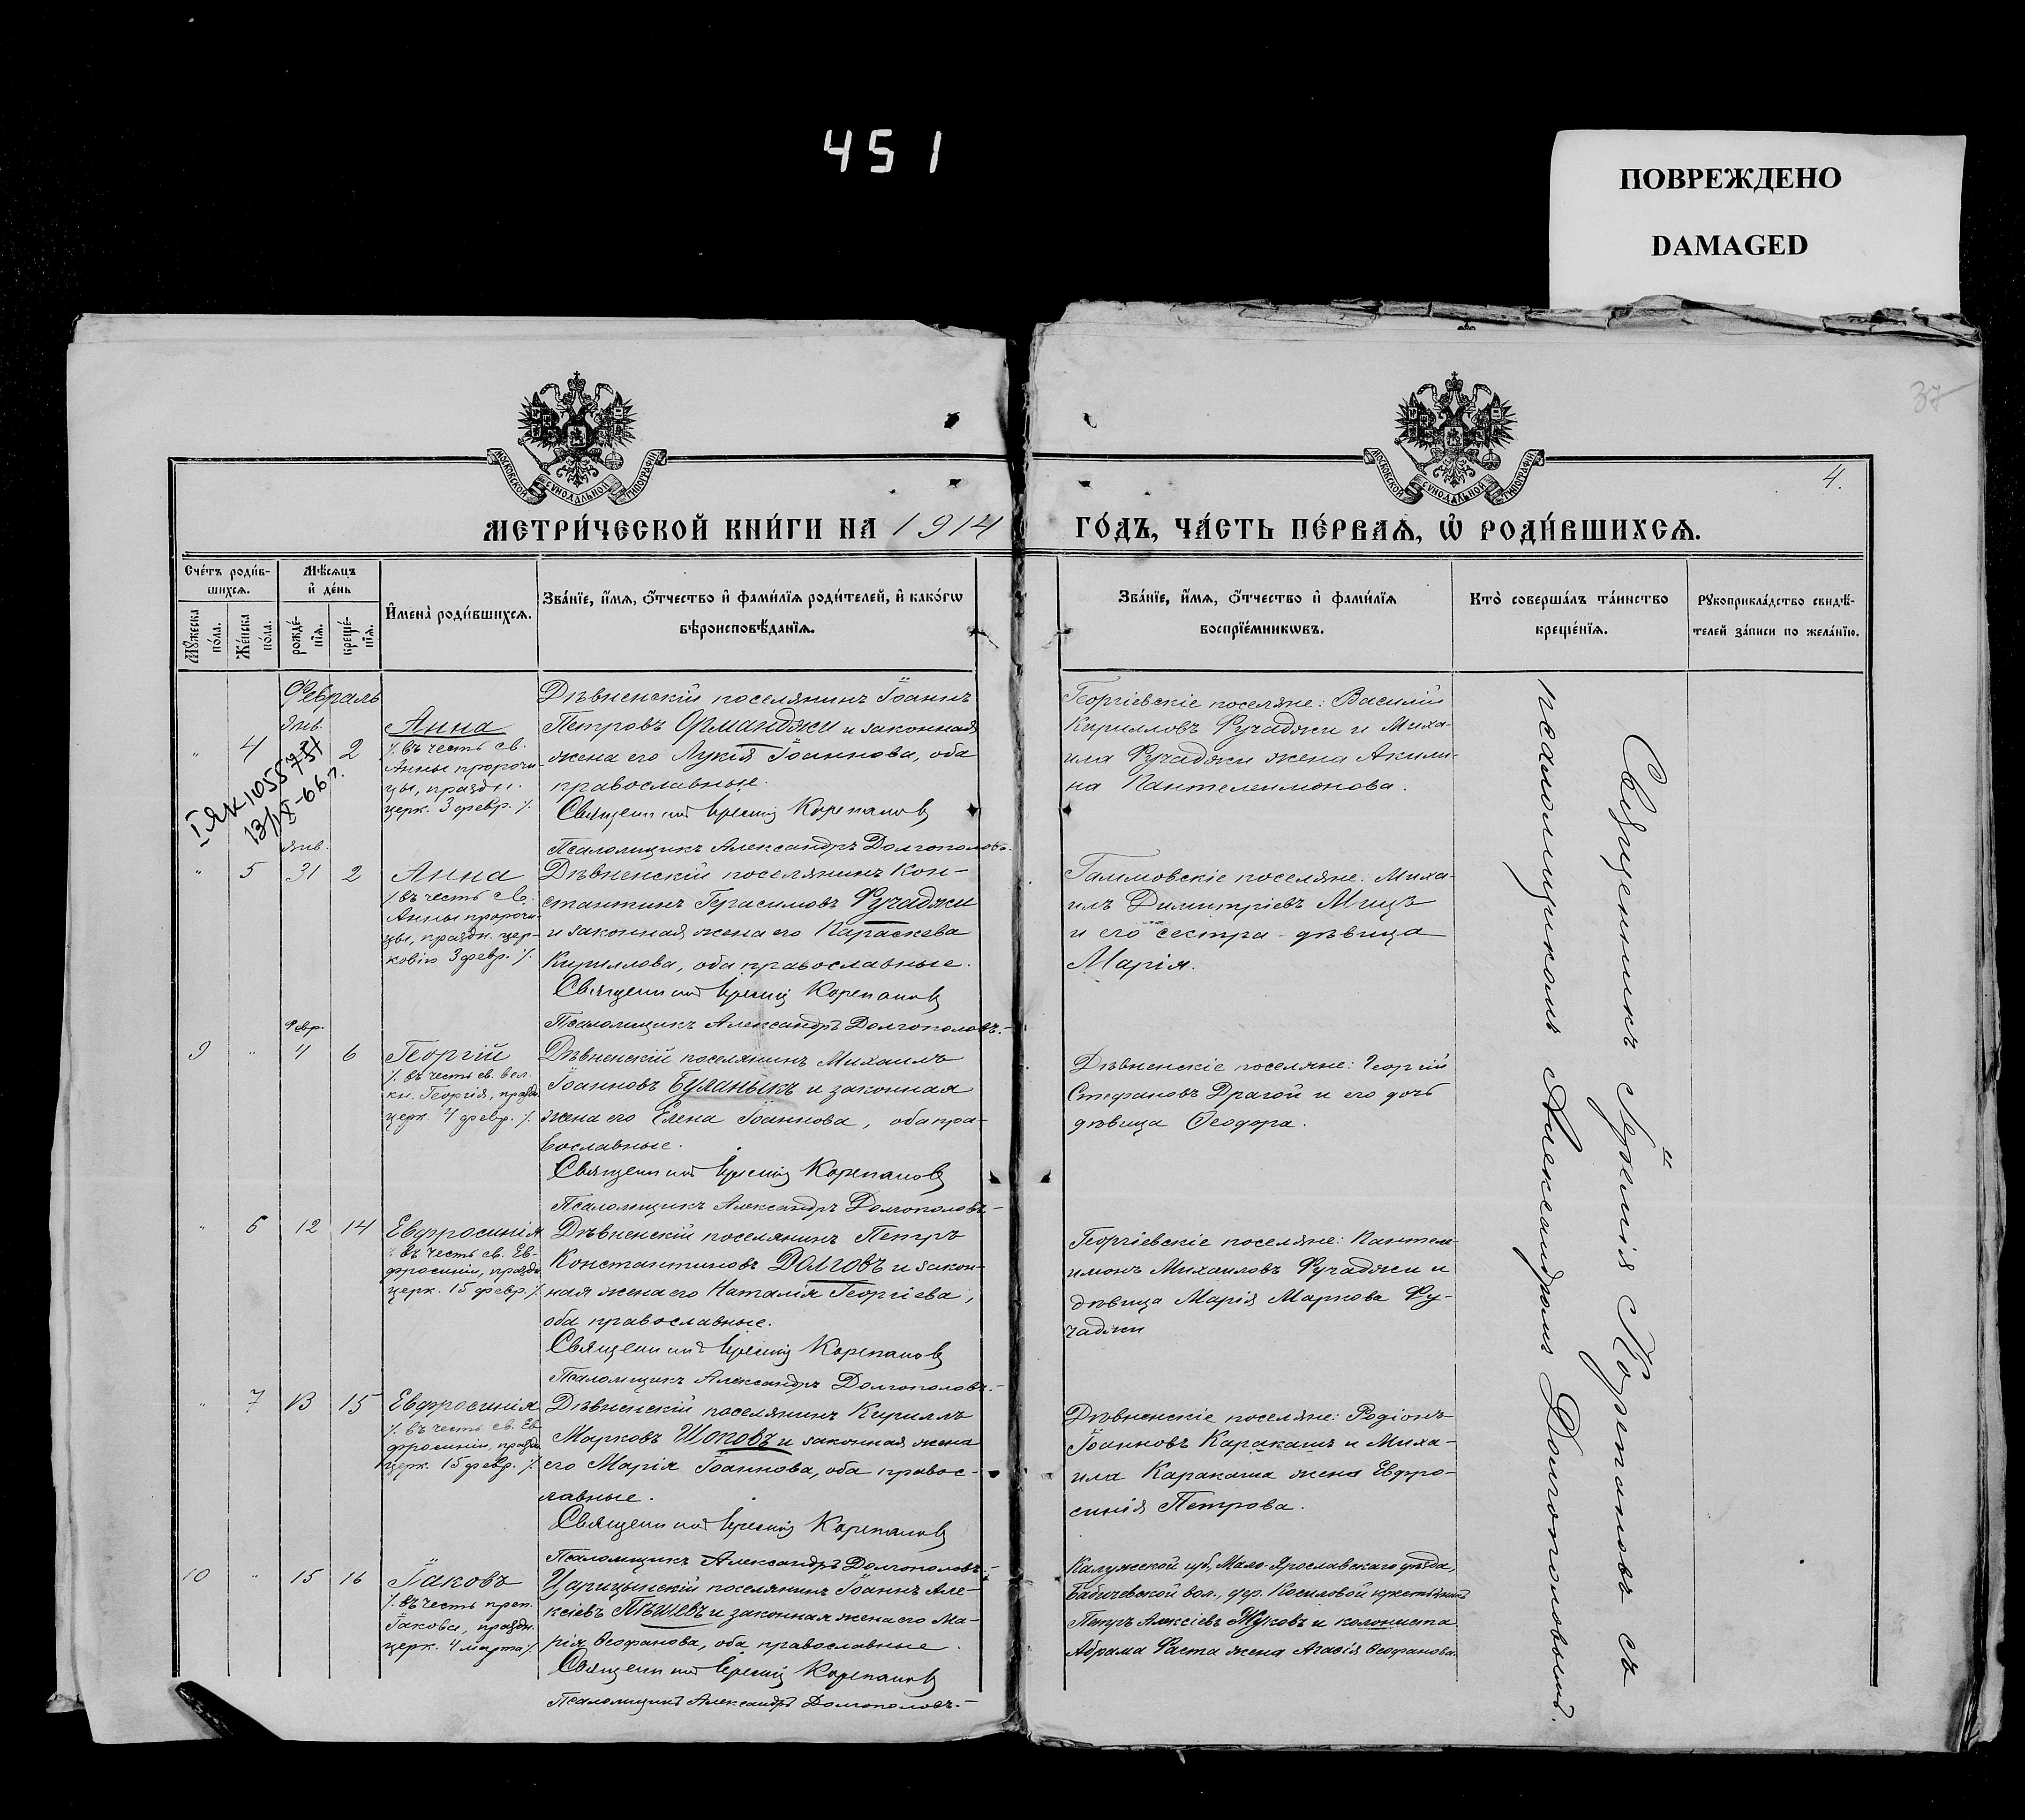 451
ПОВРЕЖДЕНО
DAMAGED
37
4.
МОСКОВСКОЙ СѴНОДАЛЬНОЙ ТИПОГРАФІИ
МОСКОВСКОЙ СѴНОДАЛЬНОЙ ТИПОГРАФІИ
МЕТРИ́ЧЕСКОЙ КНИ́ГИ НА 1914 ГО́ДЪ, ЧА́СТЬ ПЕ́РВАѦ, Ѡ҆ РОДИ́ВШИХСѦ.
Сче́тъ роди́в-
шихсѧ.
Мꙋ́жеска
по́ла.
Же́нска
по́ла.
Мѣ́сѧцъ
и҆ де́нь
рожде́-
нїѧ.
креще́-
нїѧ.
И҆мена̀ роди́вшихсѧ.
Зва́нїе, и҆́мѧ, ѻ҆́тчество и҆ фами́лїѧ роди́телей, и҆ како́гѡ
вѣроисповѣ́данїѧ.
Зва́нїе, и҆́мѧ, ѻ҆́тчество и҆ фами́лїѧ
воспрїе́мникѡвъ.
Кто̀ соверша́лъ та́инство
креще́нїѧ.
Рꙋкоприкла́дство свидѣ́-
телей за́писи по жела́нїю.
Февраль
Янв.
" 4 31 2
I ЯК-1055
13/IX-66 г.
Анна
/. въ честь св.
Анны пророчи-
цы, праздн.
церк. 3 февр. /.
Дѣвненскій поселянинъ Іоаннъ
Петровъ Орманджи и законная
жена его Лукія Іоаннова, оба
православные.
Священникъ Іереміа Корепановъ
Псаломщикъ Александръ Долгополовъ.
Георгіевскіе поселяне: Василій
Кирилловъ Ручаджи и Миха-
ила Ручаджи жена Акили-
на Пантелеимонова.
Янв.
" 5 31 2
Анна
/. въ честь св.
Анны пророчи-
цы, праздн. цер-
ковію 3 февр. /.
Дѣвненскій поселянинъ Кон-
стантинъ Герасимовъ Ручаджи
и законная жена его Параскева
Кириллова, оба православные.
Священникъ Іереміа Корепановъ
Псаломщикъ Александръ Долгополовъ.
Галимовскіе поселяне: Миха-
илъ Димитріевъ Мицъ
и его сестра - дѣвица
Марія.
Февр.
9 " 4 6
Георгій
/. въ честь св. вел.
кн. Георгія, праздн.
церк. 4 февр. /.
Дѣвненскій поселянинъ Михаилъ
Іоанновъ Буланыкъ и законная
жена его Елена Іоаннова, оба пра-
вославные.
Священникъ Іереміа Корепановъ
Псаломщикъ Александръ Долгополовъ.
Дѣвненскіе поселяне: Георгій
Стефановъ Драгой и его дочь
дѣвица Ѳеодора.
" 6 12 14
Евфросинія
/. въ честь св. Ев-
фросиніи, праздн.
церк. 15 февр. /.
Дѣвненскій поселянинъ Петръ
Константиновъ Долговъ и закон-
ная жена его Наталія Георгіева,
оба православные.
Священникъ Іереміа Корепановъ
Псаломщикъ Александръ Долгополовъ.
Георгіевскіе поселяне: Пантеле-
имонъ Михаиловъ Ручаджи и
дѣвица Марія Маркова Ру-
чаджи
" 7 13 15
Евфросинія
/. въ честь св. Ев-
фросиніи, праздн.
церк. 15 февр. /.
Дѣвненскій поселянинъ Кириллъ
Марковъ Шоповъ и законная жена
его Марія Іоаннова, оба правос-
лавные.
Священникъ Іереміа Корепановъ
Псаломщикъ Александръ Долгополовъ.
Дѣвненскіе поселяне: Родіонъ
Іоанновъ Каракашъ и Миха-
ила Каракаша жена Евфро-
синія Петрова.
10 " 15 16
Іаковъ
/. въ честь преп.
Іакова, праздн.
церк. 4 марта /.
Царицынскій поселянинъ Іоаннъ Але-
ксіевъ Пѣшевъ и законная жена его Ма-
рія Ѳеофанова, оба православные.
Священникъ Іереміа Корепановъ
Псаломщикъ Александръ Долгополовъ.
Калужской губ., Мало-Ярославскаго уѣзда,
Бабичевской вол., дер. Косиловой крестьянинъ
Петръ Алексіевъ Жуковъ и колониста
Абрама Фаста жена Агаѳія Ѳеофанова.
Священникъ Іеремія Корепановъ съ
псаломщикомъ Александромъ Долгополовымъ.